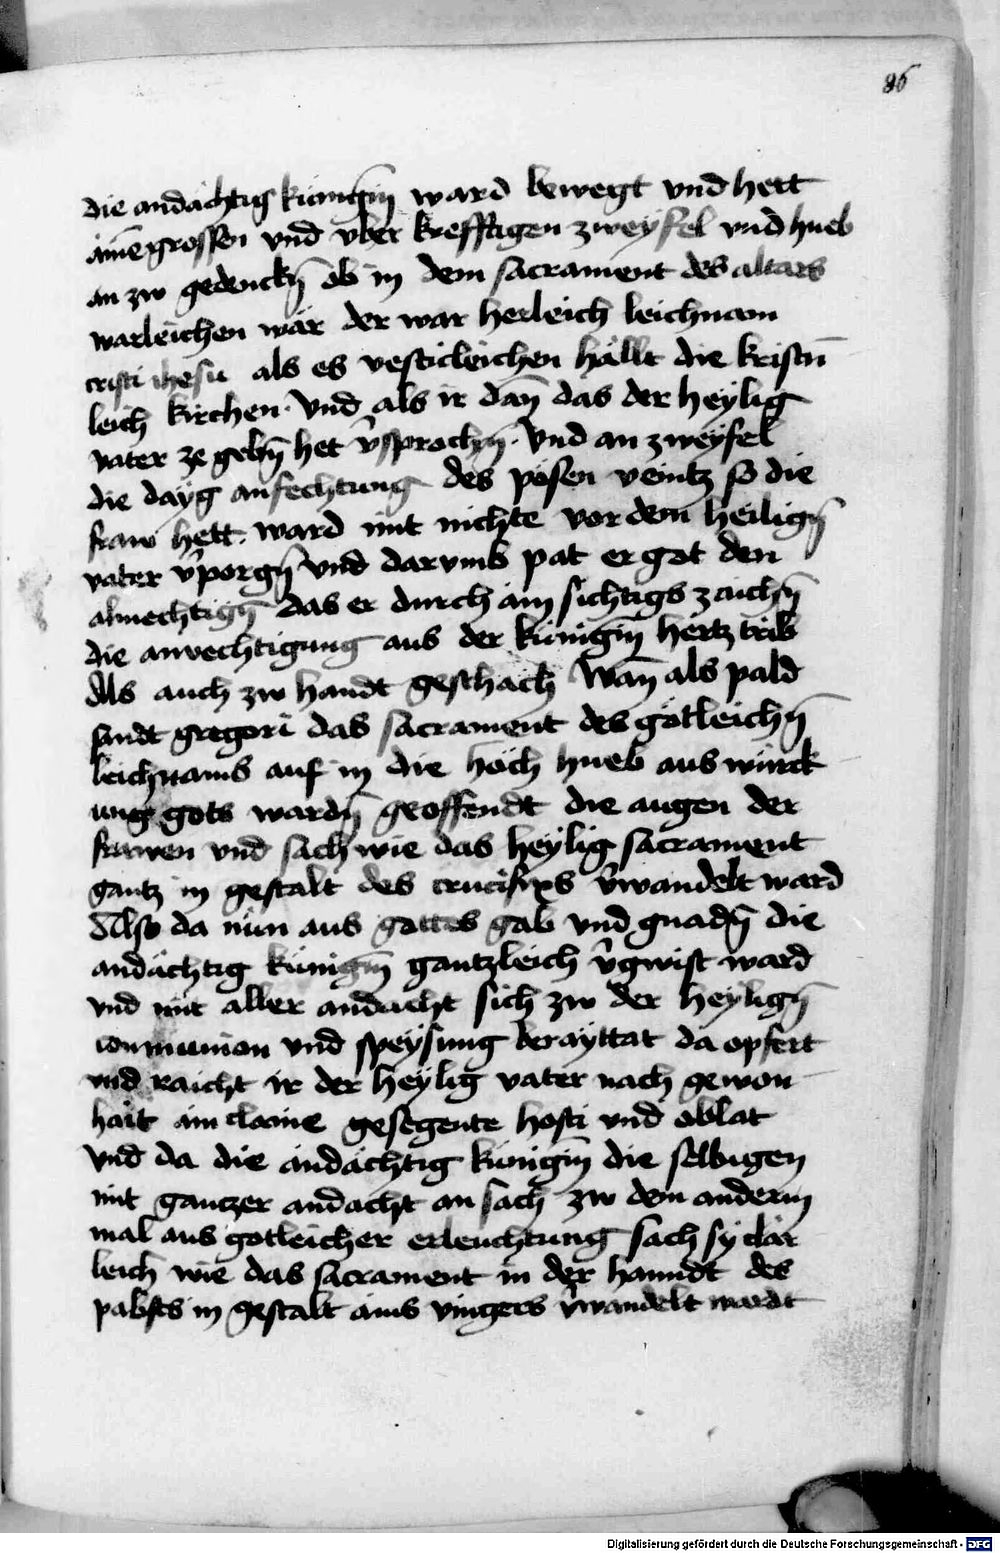 86
die andächtig künigin̄ ward bewegt vnd hett
ainē grossen vnd vber krefftigen zweyfel vnd hueb
an zw gedenckn̄ ob in dem sacrament des altars
warleichen wär der war herleich leichnam
cristi ihesu als es vesticleichen hällt die kristn̄
leich kirchen. Vnd als ir dan̄ das der heylig
vater ze gebn̄ het v̄sprochn̄. Vnd an zweyfel
die dayg anfechtung des pösen veintz so die
fraw hett. ward mit nichte vor dem heilign̄
vater v̄porgn̄ Vnd darvmb pat er got den
almechtign̄ das er durch ain sichtigs zaichn̄
die anvechtigung aus der künigin̄ hertz trib
Als auch zw handt geschach Wan̄ als pald
sandt gregori das sacrament des götleichn̄
leichnams auf in die höch hueb aus würck
ung gots wardn̄ geoffendt die augen der
frawen vnd sach wie das heylig sacrament
gantz in gestalt des crucifixs v̄wandelt ward
Also da nün aus gottes gab vnd gnadn̄ die
andächtig künigin̄ gantzleich v̄gwist ward
vnd mit aller andacht sich zw der heylign̄
communion vnd speysung berayttat da opfert
vnd raicht ir der heylig vater nach gewon
hait ain claine gesegente hosti vnd oblat
Vnd da die andächtig künigin̄ die selbigen
mit ganczer andacht an sach zw dem anderm
mal aus gotleicher erleuchtung sach sy clär
leich wie das sacrament in der hanndt des
pabsts in gestalt ains vingers v̄wandelt wardt
Digitalisierung gefördert durch die Deutsche Forschungsgemeinschaft - DFG